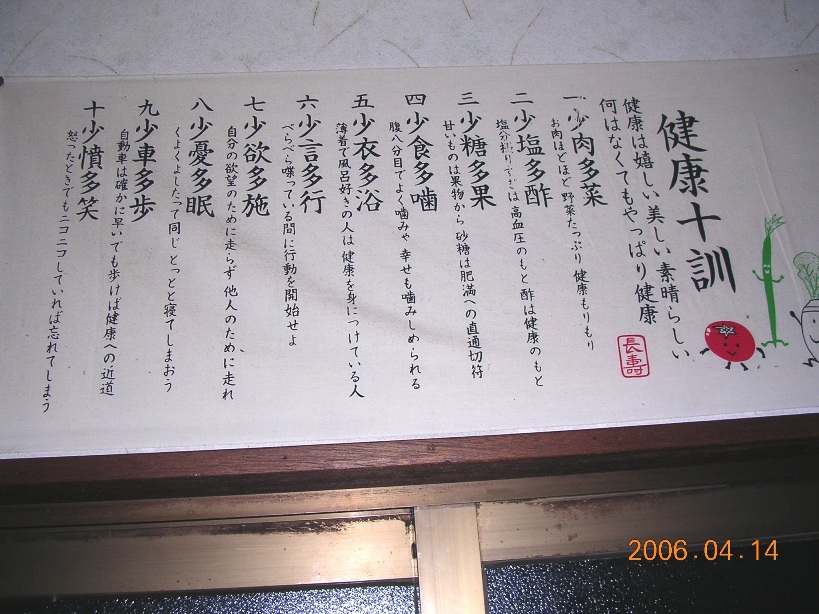 健康十訓
健康は嬉しい美しい素晴らしい
何はなくてもやっぱり健康
長寿
一 少肉多菜
お肉ほどほど 野菜たっぷり 健康もりもり
二 少塩多酢
塩分摂りすぎは高血圧のもと 酢は健康のもと
三 少糖多果
甘いものは果物から 砂糖は肥満への直通切符
四 少食多噛
腹八分目でよく噛みゃ 幸せも噛みしめられる
五 少衣多浴
薄着で風呂好きの人は 健康を身につけている人
六 少言多行
べらべら喋っている間に行動を開始せよ
七 少欲多施
自分の欲望のために走らず 他人のために走れ
八 少憂多眠
くよくよしたって同じ とっとと寝てしまおう
九 少車多歩
自動車は確かに早い でも歩けば健康への近道
十 少憤多笑
怒ったときでもニコニコしていれば忘れてしまう
2006.04.14